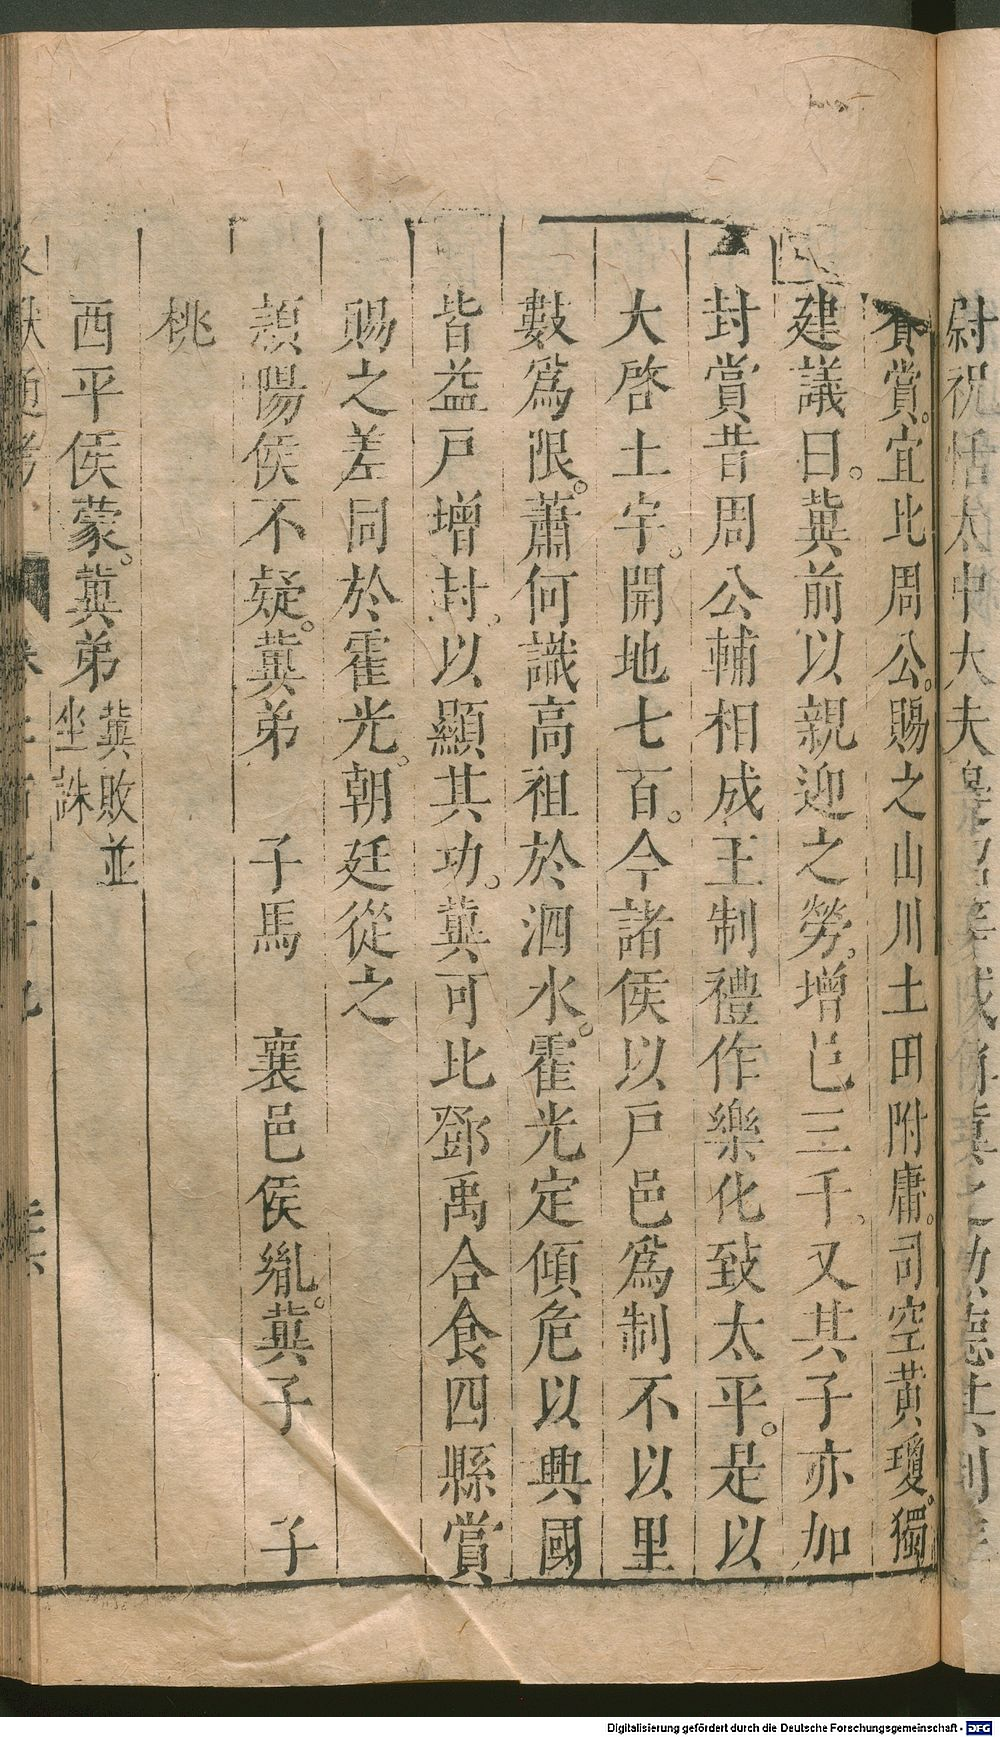 尉祝恬太中大夫
賞宜比周公賜之山川土田附庸司空黃瓊獨
建議曰冀前以親迎之勞增邑三千又其子亦加
封賞昔周公輔相成王制禮作樂化致太平是以
大啓土宇開地七百今諸侯以戸邑爲制不以里
數爲限蕭何識高祖於泗水霍光定傾危以興國
皆益戸增封以顯其功冀可比鄧禹合食四縣賞
賜之差同於霍光朝廷從之
潁陽侯不疑冀弟　子馬　襄邑侯胤冀子　子
桃
西平侯蒙冀弟冀敗並坐誅
Digitalisierung gefördert durch die Deutsche Forschungsgemeinschaft - DFG